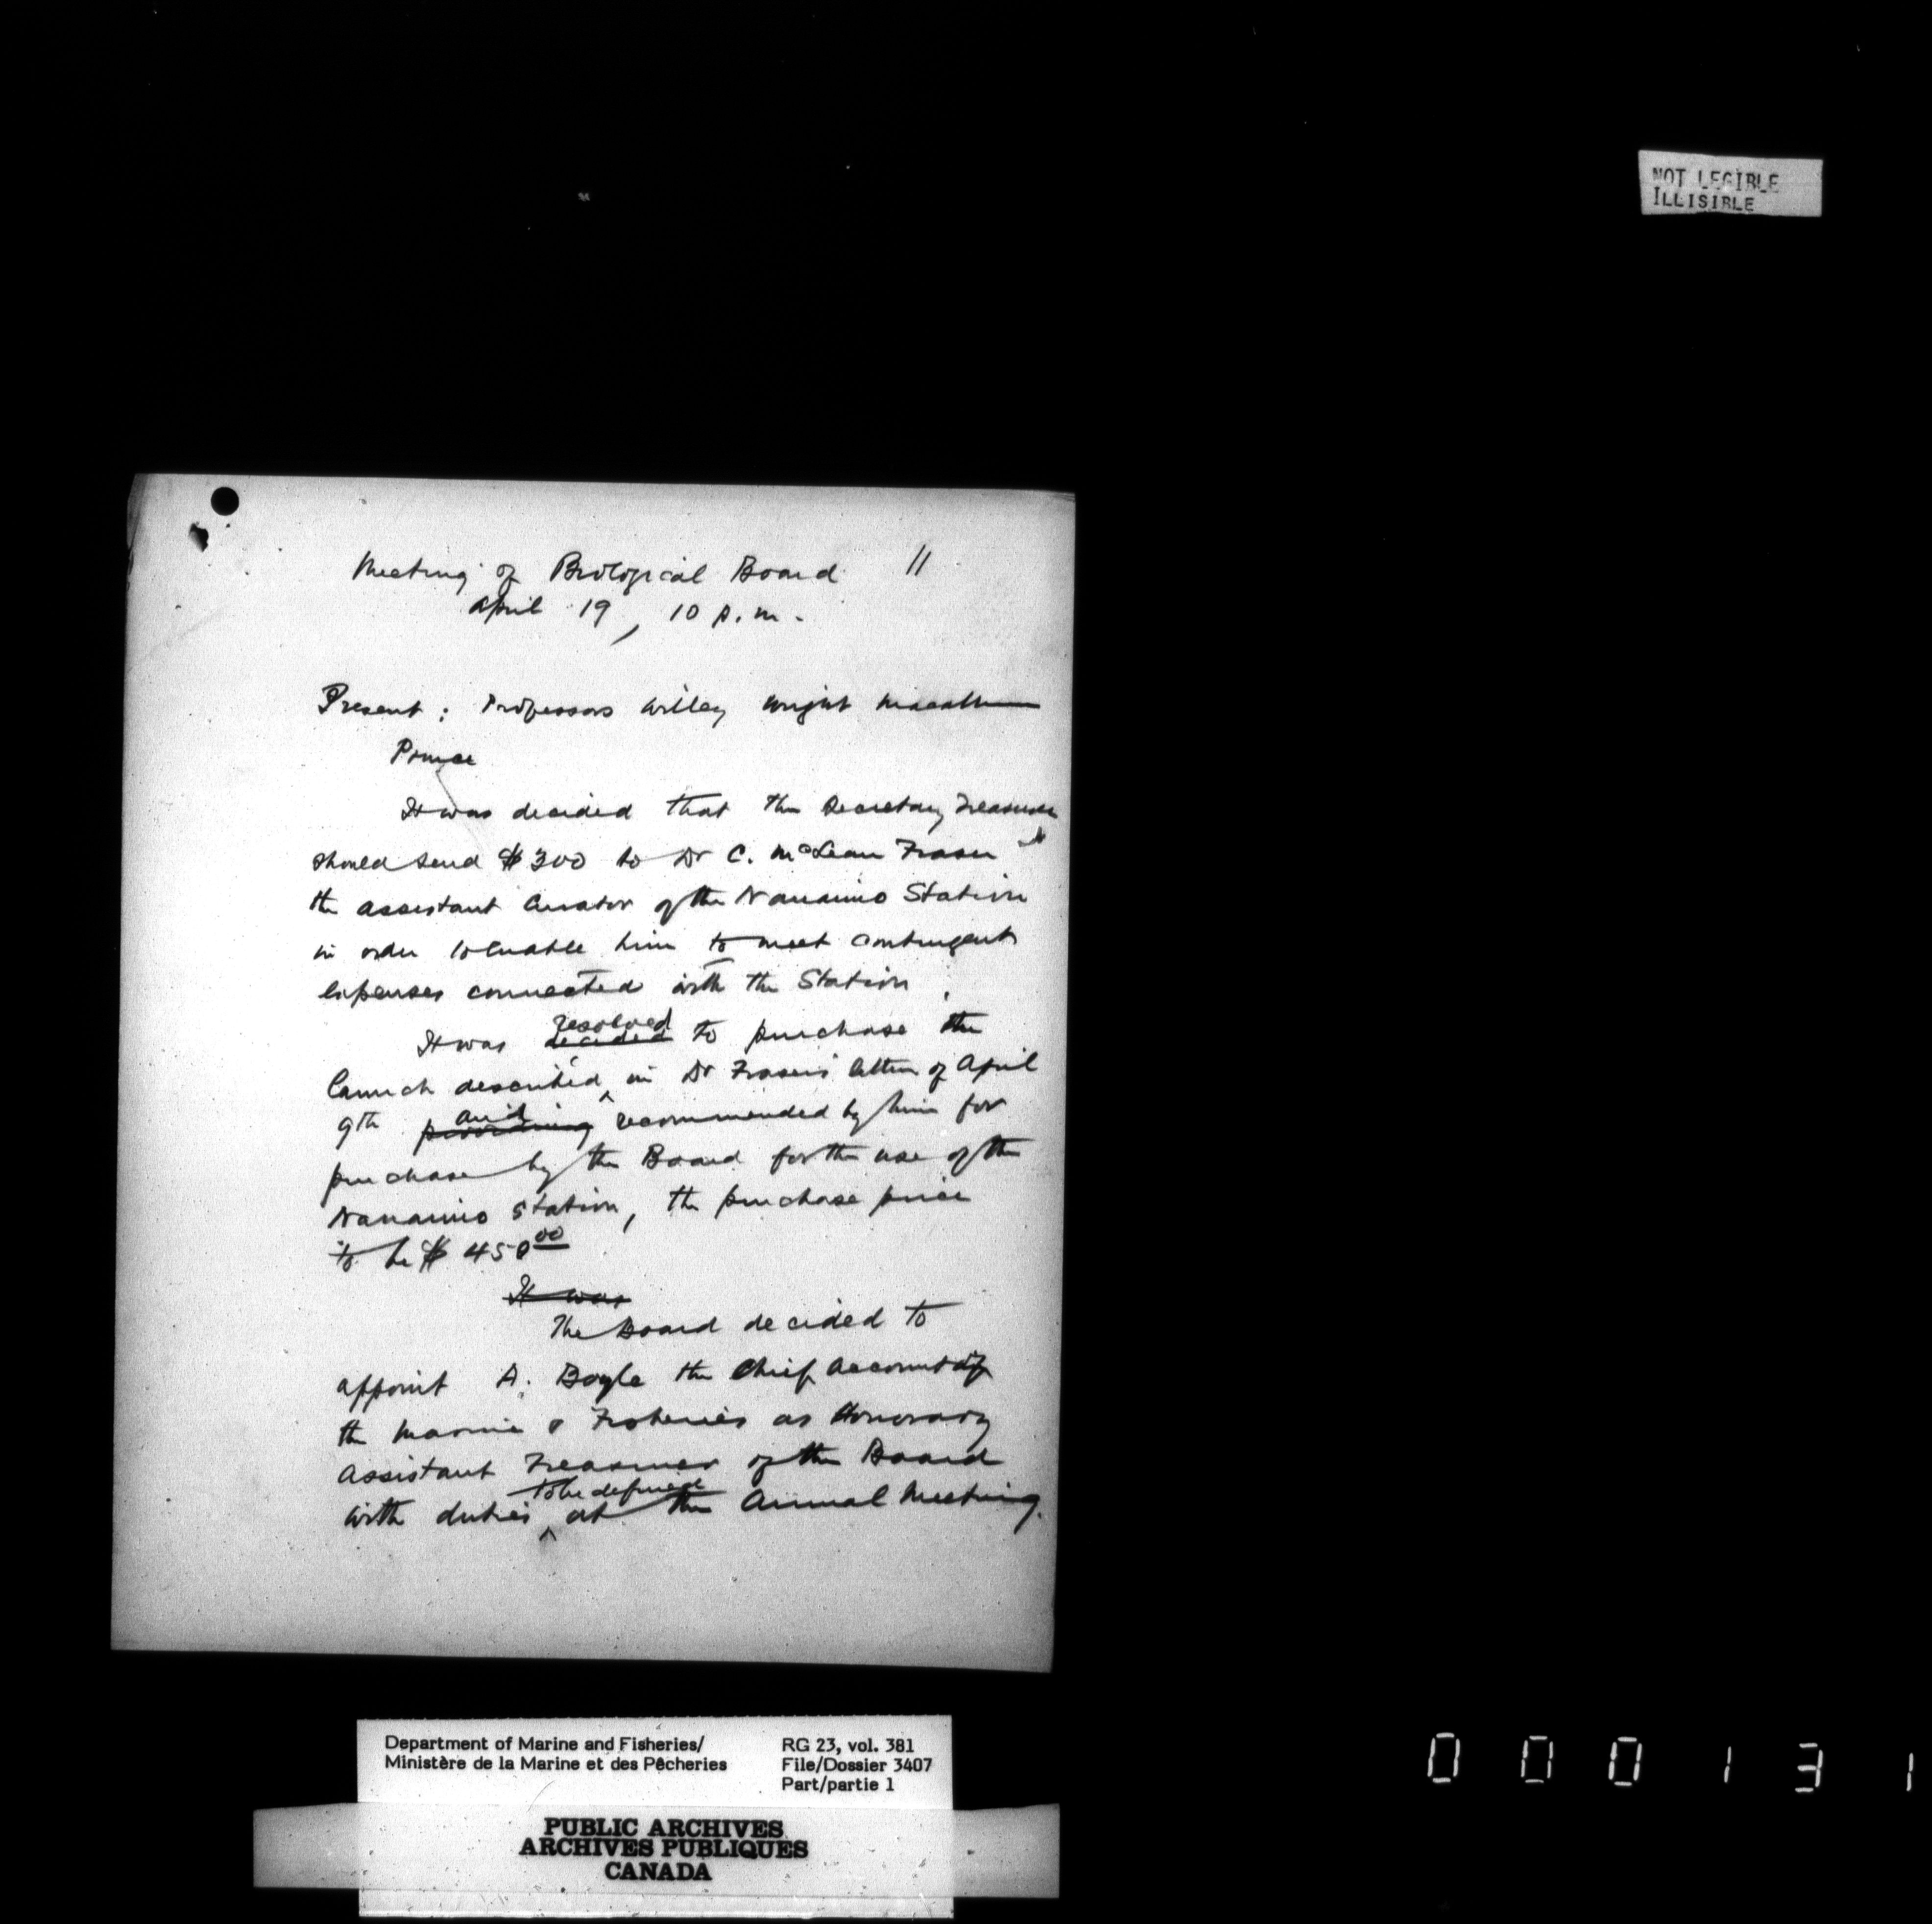 NOT LEGIBLE
ILLISIBLE
Meeting of Biological Board 11
April 19, 10 p.m.
Present: Professors Willey Wright Macallum
Prince
It was decided that the Secretary Treasurer
should send $300 to Dr C. McLean Fraser
the assistant Curator of the Nanaimo Station
in order to enable him to meet contingent
expenses connected with the Station.
It was decided resolved to purchase the
launch described in Dr Fraser's letter of April
9th and recommended by him for
purchase by the Board for the use of the
Nanaimo Station, the purchase price
to be $450.00
It was
The Board decided to
appoint A. Boyle the Chief Account of
the Marine & Fisheries as Honorary
Assistant Treasurer of the Board
with duties to be defined at the Annual Meeting.
Department of Marine and Fisheries/
Ministère de la Marine et des Pêcheries
RG 23, vol. 381
File/Dossier 3407
Part/partie 1
PUBLIC ARCHIVES
ARCHIVES PUBLIQUES
CANADA
0 0 0 1 3 1